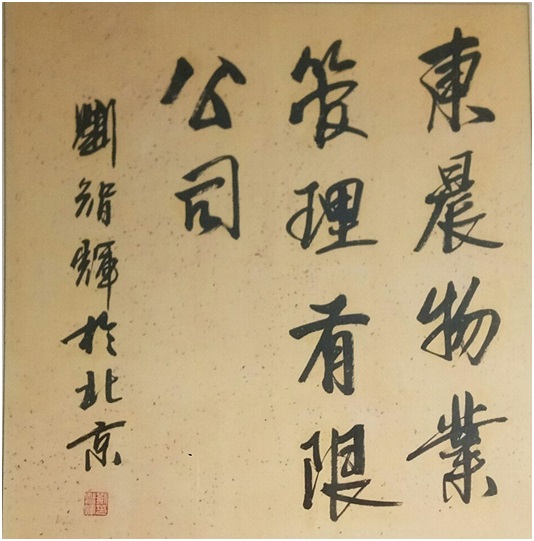 東晨物業
管理有限
公司
劉智輝於北京